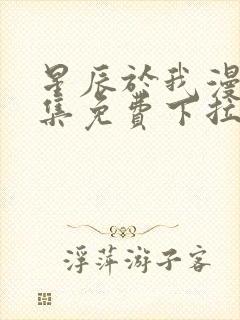 星辰於我漫
集免費下拉
浮萍游子客